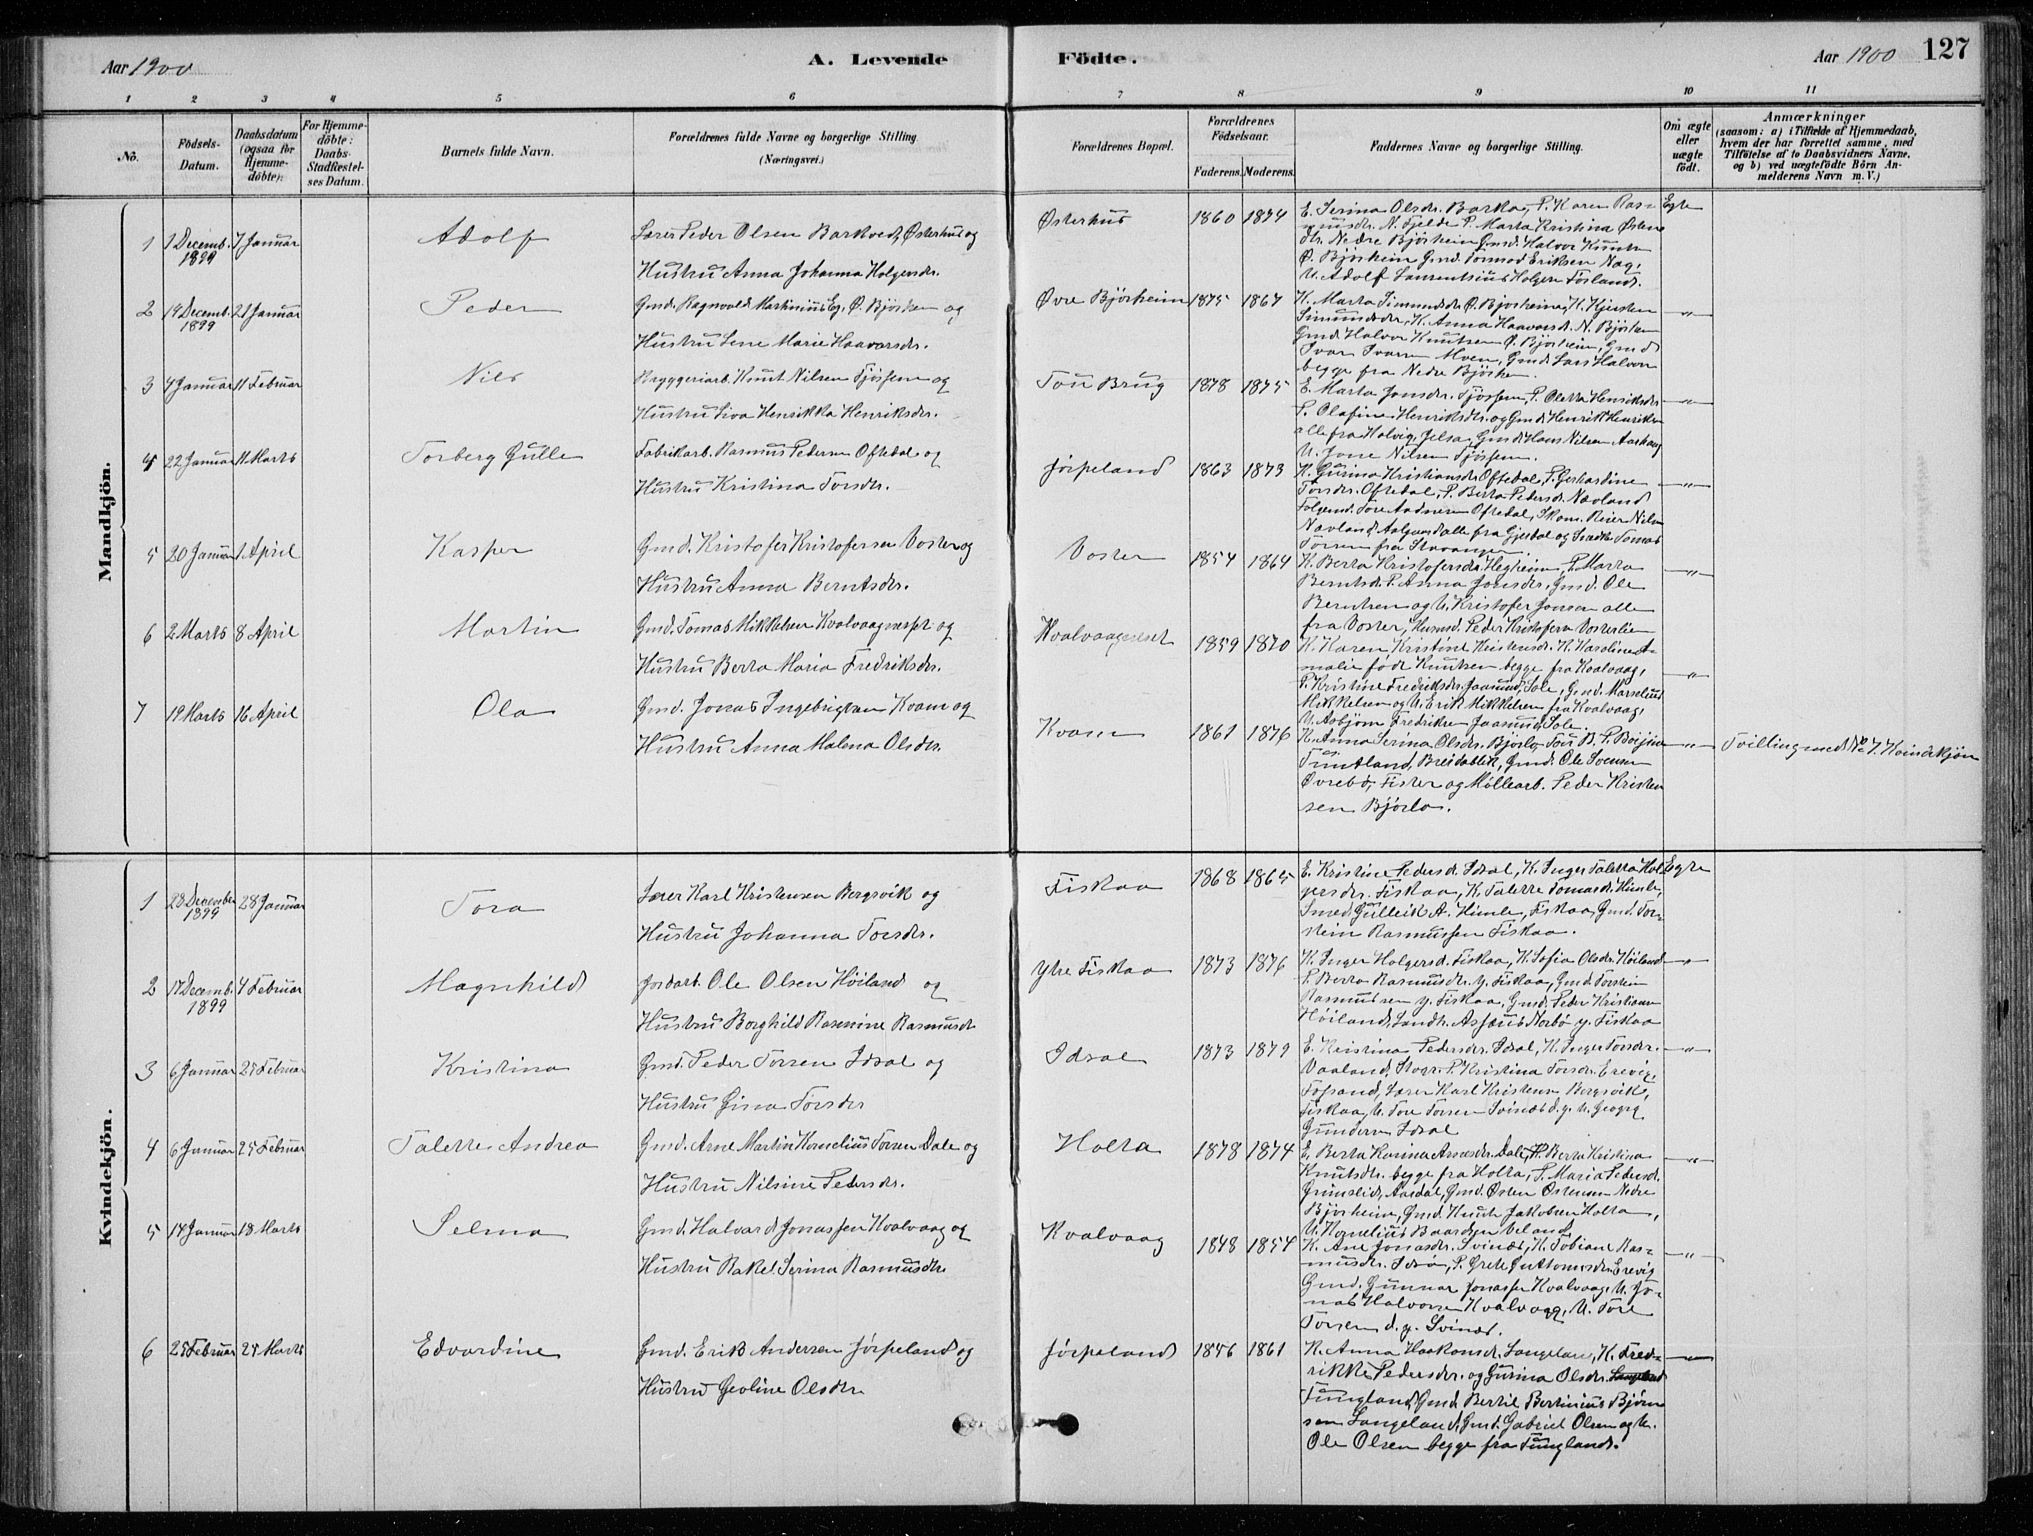 Aar 1900
A. Levende
Födte.
Aar 1900
127
1 2 3 4 5 6 7 8 9 10 11
No.
Födsels-
Datum.
Daabsdatum
(ogsaa for
Hjemme-
döbte).
For Hjemme-
döbte:
Daabs-
Stadfæstel-
ses Datum.
Barnets fulde Navn.
Forældrenes fulde Navne og borgerlige Stilling.
(Næringsvei.)
Forældrenes Bopæl.
Forældrenes
Födselsaar.
Faderens. Moderens.
Faddernes Navne og borgerlige Stilling.
Om ægte
eller
uægte
födt.
Anmærkninger
(saasom: a) i Tilfælde af Hjemmedaab,
hvem der har forrettet samme, med
Tilföielse af to Daabsvidners Navne,
og b) ved uægtefödte Börn An-
melderens Navn m. V.)
Mandkjön.
1 1 Decemb. 1899 7 Januar Adolf
Lærer Peder Olsen Barkved, Østerhus og
Hustru Anna Johanna Holgersdr.
Østerhus 1860 1874
E. Serina Olsdr. Barka, P. Karen Ras-
musdr. N. Fjelde P. Marta Kristina Østens
dtr. Nedre Bjørheim Gmd. Halvor Knuts.
Ø. Bjørheim Gmd. Tormod Eriksen Nag,
U. Adolf Laurentsius Holgers. Fosland.
Egte
2 14 Decemb. 1899 21 Januar Peder
Gmd. Ragnvald Martinius Eg. Ø. Bjørheim og
Hustru Lene Marie Haavarsdr.
Øvre Bjørheim 1875 1867
K. Marta Simunsdr. Ø. Bjørheim, K. Kjersten
Simunsdr, K. Anna Haavarsd. N. Bjørheim
Gmd. Halvor Knutsen Ø. Bjørheim, Gmd.
Ivar Ivarsen Moen, Gmd. Lars Halvors.
begge fra Nedre Bjørheim.
"
3 4 Januar 11 Februar Nils
Bryggeriarb. Knut Nilsen Tjøssem og
Hustru Siva Henrikka Henriksdr.
Tou Brug 1878 1875
E. Marta Jonsdr. Tjøssem, P. Oletta Henriksdr
P. Olafine Henriksdtr. og Gmd. Henrik Henriksen
alle fra Halvig, Jelsa, Gmd. Hans Nilsen Aarhaug
U. Jone Nilsen Tjøssem.
"
4 22 Januar 11 Marts Torberg Gulle
Fabrikarb. Rasmus Pedersen Oftedal og
Hustru Kristina Torsdr.
Jørpeland 1863 1873
K. Gurina Kristiansdr. Oftedal, P. Gerhardine
Torsdr. Oftedal, P. Berta Pedersdr. Nævland
Folgemd. Tore Andersen Oftedal, Skom. Reier Nilsen
Navland, Aalgaard alle fra Gjesdal og Smeds Tomas
Torsen fra Stavanger.
"
5 20 Januar 1 April Kasper
Gmd. Kristofer Kristofersen Voster og
Hustru Anna Berntsdr.
Voster 1854 1864
K. Berta Kristofersdr. Hegheim, P. Marta
Berntsdr. P. Anna Jonsdr, Gmd. Ole
Berntsen og U. Kristofer Jonsen alle
fra Voster, Husmd. Peder Kristofers. Vosterlien
"
6 2 Marts 8 April Martin
Gmd. Tomas Mikkelsen Kvalvaagneset og
Hustru Berta Maria Fredriksdr.
Kvalvaagneset 1859 1870
K. Karen Kristine Kristensdr. K. Karoline A-
malie født Knutsen begge fra Kvalvaag,
P. Kristine Fredriksdr. Jaasund, Sole, Gmd. Marselius
Mikkelsen og U. Erik Mikkelsen fra Kvalvaag,
U. Asbjørn Fredriksen Jaasund, Sole.
"
7 19 Marts 16 April Ola
Gmd. Jonas Ingebrigtsen Kvam og
Hustru Anna Malena Olsdtr.
Kvam 1861 1876
K. Anna Serina Olsdr. Bjørlo Tou B. P. Borjina
Tuntland, Breidablik, Gmd. Ole Svensen
Øvrebø, Fister og Møllearb. Peder Kristen
sen Bjørlo.
"
Tvilling med No 7. Kvindekjøn
Kvindekjön.
1 28 December 1899 28 Januar Tora
Lærer Karl Kristensen Bergsvik og
Hustru Johanna Torsdr.
Fiskaa 1868 1865
E. Kristine Pedersd. Idsal, K. Inger Taletta Hol-
gersdr. Fiskaa, K. Talette Tomasdr. Himle,
Smed Gulleik A. Himle, Fiskaa, Gmd. Tor-
stein Rasmussen Fiskaa.
Egte
2 17 Decemb. 1899 4 Februar Magnhild
Jordarb. Ole Olsen Høiland og
Hustru Borghild Rasmine Rasmusdr
Ytre Fiskaa 1873 1876
K. Inger Holgersd. Fiskaa, K. Sofia Olsdr. Høiland
P. Berta Rasmusdr. y. Fiskaa, Gmd. Torstein
Rasmussen y. Fiskaa, Gmd. Peder Kristians.
Høiland, Landh. Asseus Norbø y. Fiskaa
"
3 6 Januar 25 Februar Kristina
Gmd. Peder Torsen Idsal og
Hustru Gina Torsdr
Idsal 1873 1879
E. Kristina Pedersdr. Idsal, K. Inger Torsdr.
Vaaland, Stvgr. P. Kristina Torsdr. Erevig,
Fossand, Lærer Karl Kristensen Bergsvik,
Fiskaa, U. Tore Torsen Svinæs d.y. U. Georg
Gundersen Idsal
"
4 6 Januar 25 Februar Talette Andrea
Gmd. Arne Martin Kornelius Torsen Dale og
Hustru Nilsine Pedersdr.
Holta 1878 1874
E. Berta Karina Arnesdr. Dale, K. Berta Kristina
Knutsdtr. begge fra Holta, P. Maria Pedersd.
Grimslid, Aardal, Gmd. Østen Østensen Nedre
Bjørheim, Gmd. Knut Jakobsen Holta,
U. Kornelius Baardsen Veland
"
5 14 Januar 18 Marts Selma
Gmd. Halvard Jonassen Kvalvaag og
Hustru Rakel Serina Rasmusdtr.
Kvalvaag 1848 1854
K. Ane Jonasdr. Svinæs, K. Tobiane Ras-
musdtr. Idsø, P. Grete Guttormsdr. Erevig
Gmd. Gunnar Jonassen Kvalvaag, U. Jo-
nas Halvorsen Kvalvaag, U. Tore
Torsen d. y. Svinæs.
"
6 25 Februar 25 Marts Edvardine
Gmd. Erik Andersen Jørpeland og
Hustru Geoline Olsdtr.
Jørpeland 1856 1861
K. Anna Haakonsdr. Langeland, K. Fred-
rikke Pedersdr. og Gurina Olsdr.
Tungland, Gmd. Bertil Bertinius Bjørn
sen Langeland, Gmd. Gabriel Olsen og U.
Ole Olsen begge fra Tungland.
"